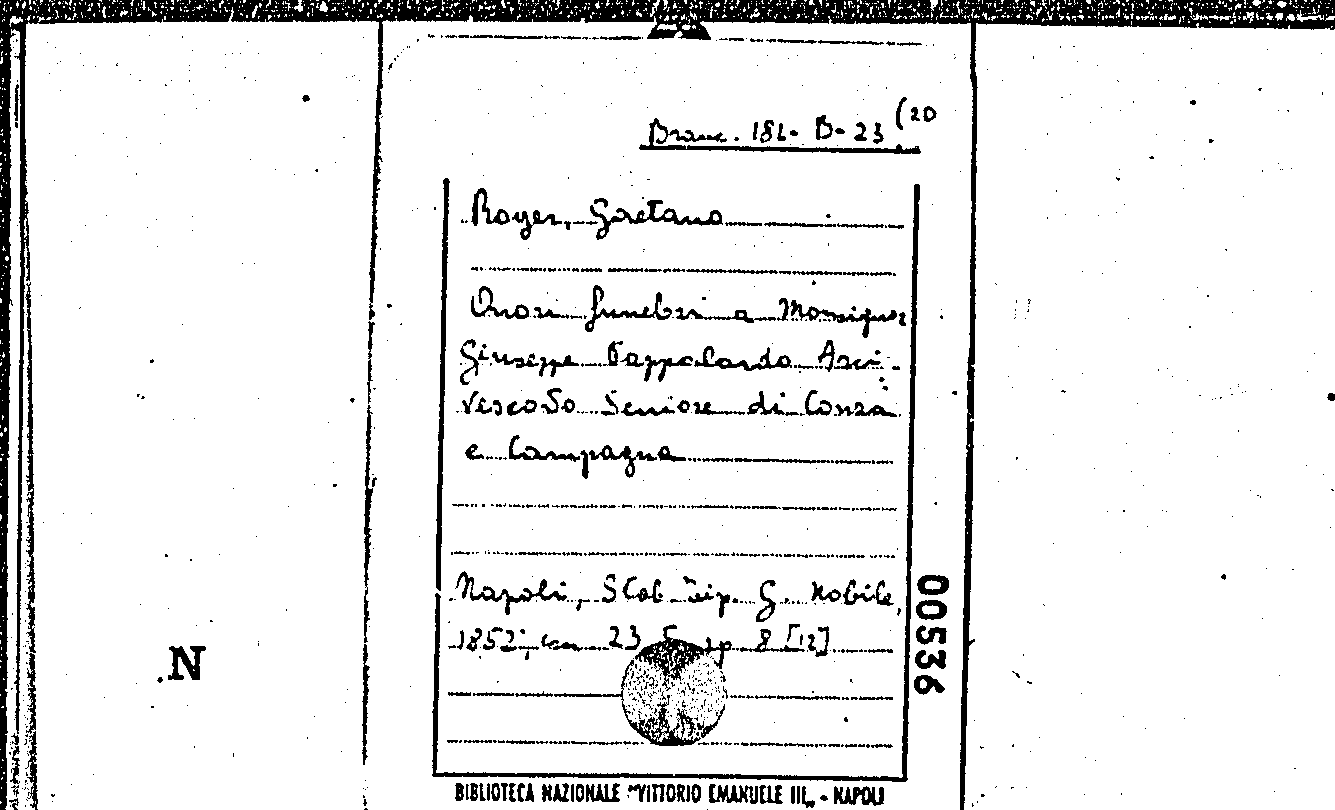 Branc. 181- B- 23 (20
Royer, Gaetano
Onori funebri a Monsignor
Giuseppe Pappalardo Arci-
vescovo Seniore di Conza
e Campagna
Napoli, Stab. Tip. G. Nobile,
1852, cm 23 pp 8 [12]
N
00536
BIBLIOTECA NAZIONALE "VITTORIO EMANUELE III„ - NAPOLI